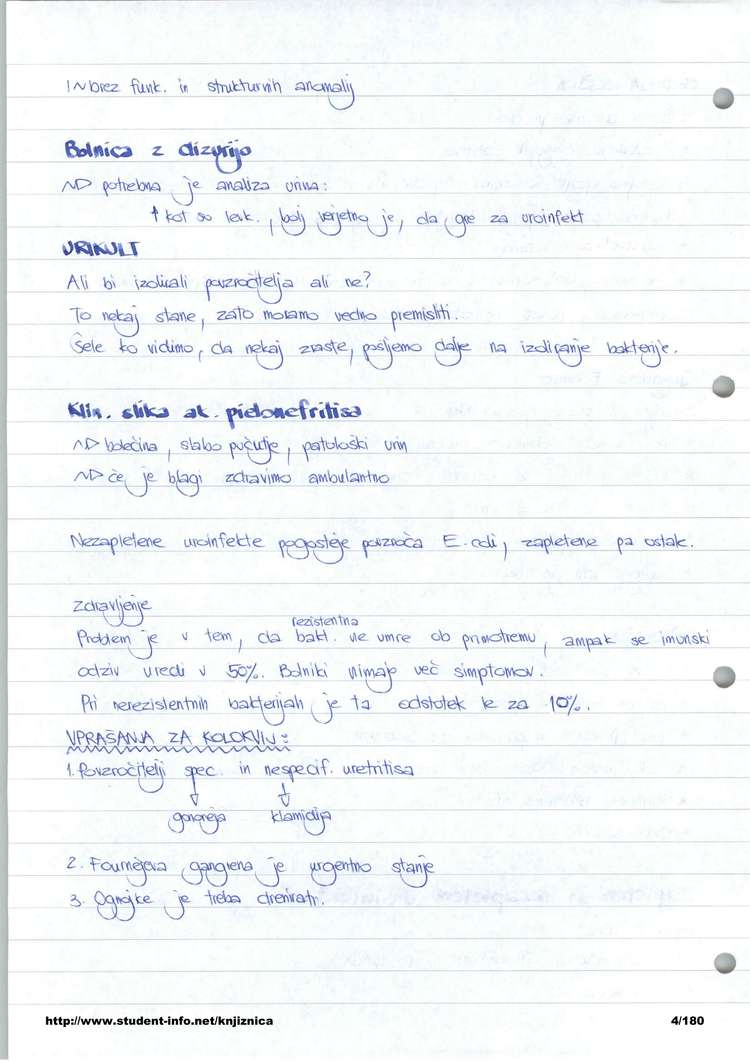 IN brez funk. in strukturnih anomalij
Bolnica z dizurijo
~D potrebna je analiza urina:
↑ kot so levk., bolj verjetno je, da gre za uroinfekt
URIKULT
Ali bi izolirali povzročitelja ali ne?
To nekaj stane, zato moramo vedno premisliti.
Šele ko vidimo, da nekaj zraste, pošljemo dalje na izoliranje bakterije.
Klin. slika ak. pielonefritisa
~D bolečina, slabo počutje, patološki urin
~D če je blagi zdravimo ambulantno
Nezapletene uroinfekte pogosteje povzroča E. coli, zapletene pa ostak.
Zdravljenje
rezistentna
Problem je v tem, da bakt. ne umre ob primotremu, ampak se imunski
odziv uredi v 50%. Bolniki nimajo več simptomov.
Pri nerezistentnih bakterijah je ta odstotek le za 10%.
VPRAŠANJA ZA KOLOKVIJ:
1. Povzročitelji spec. in nespecif. uretritisa
gonoreja klamidija
2. Fournejeva gangrena je urgentno stanje
3. Ognojke je treba drenirati.
http://www.student-info.net/knjiznica 4/180